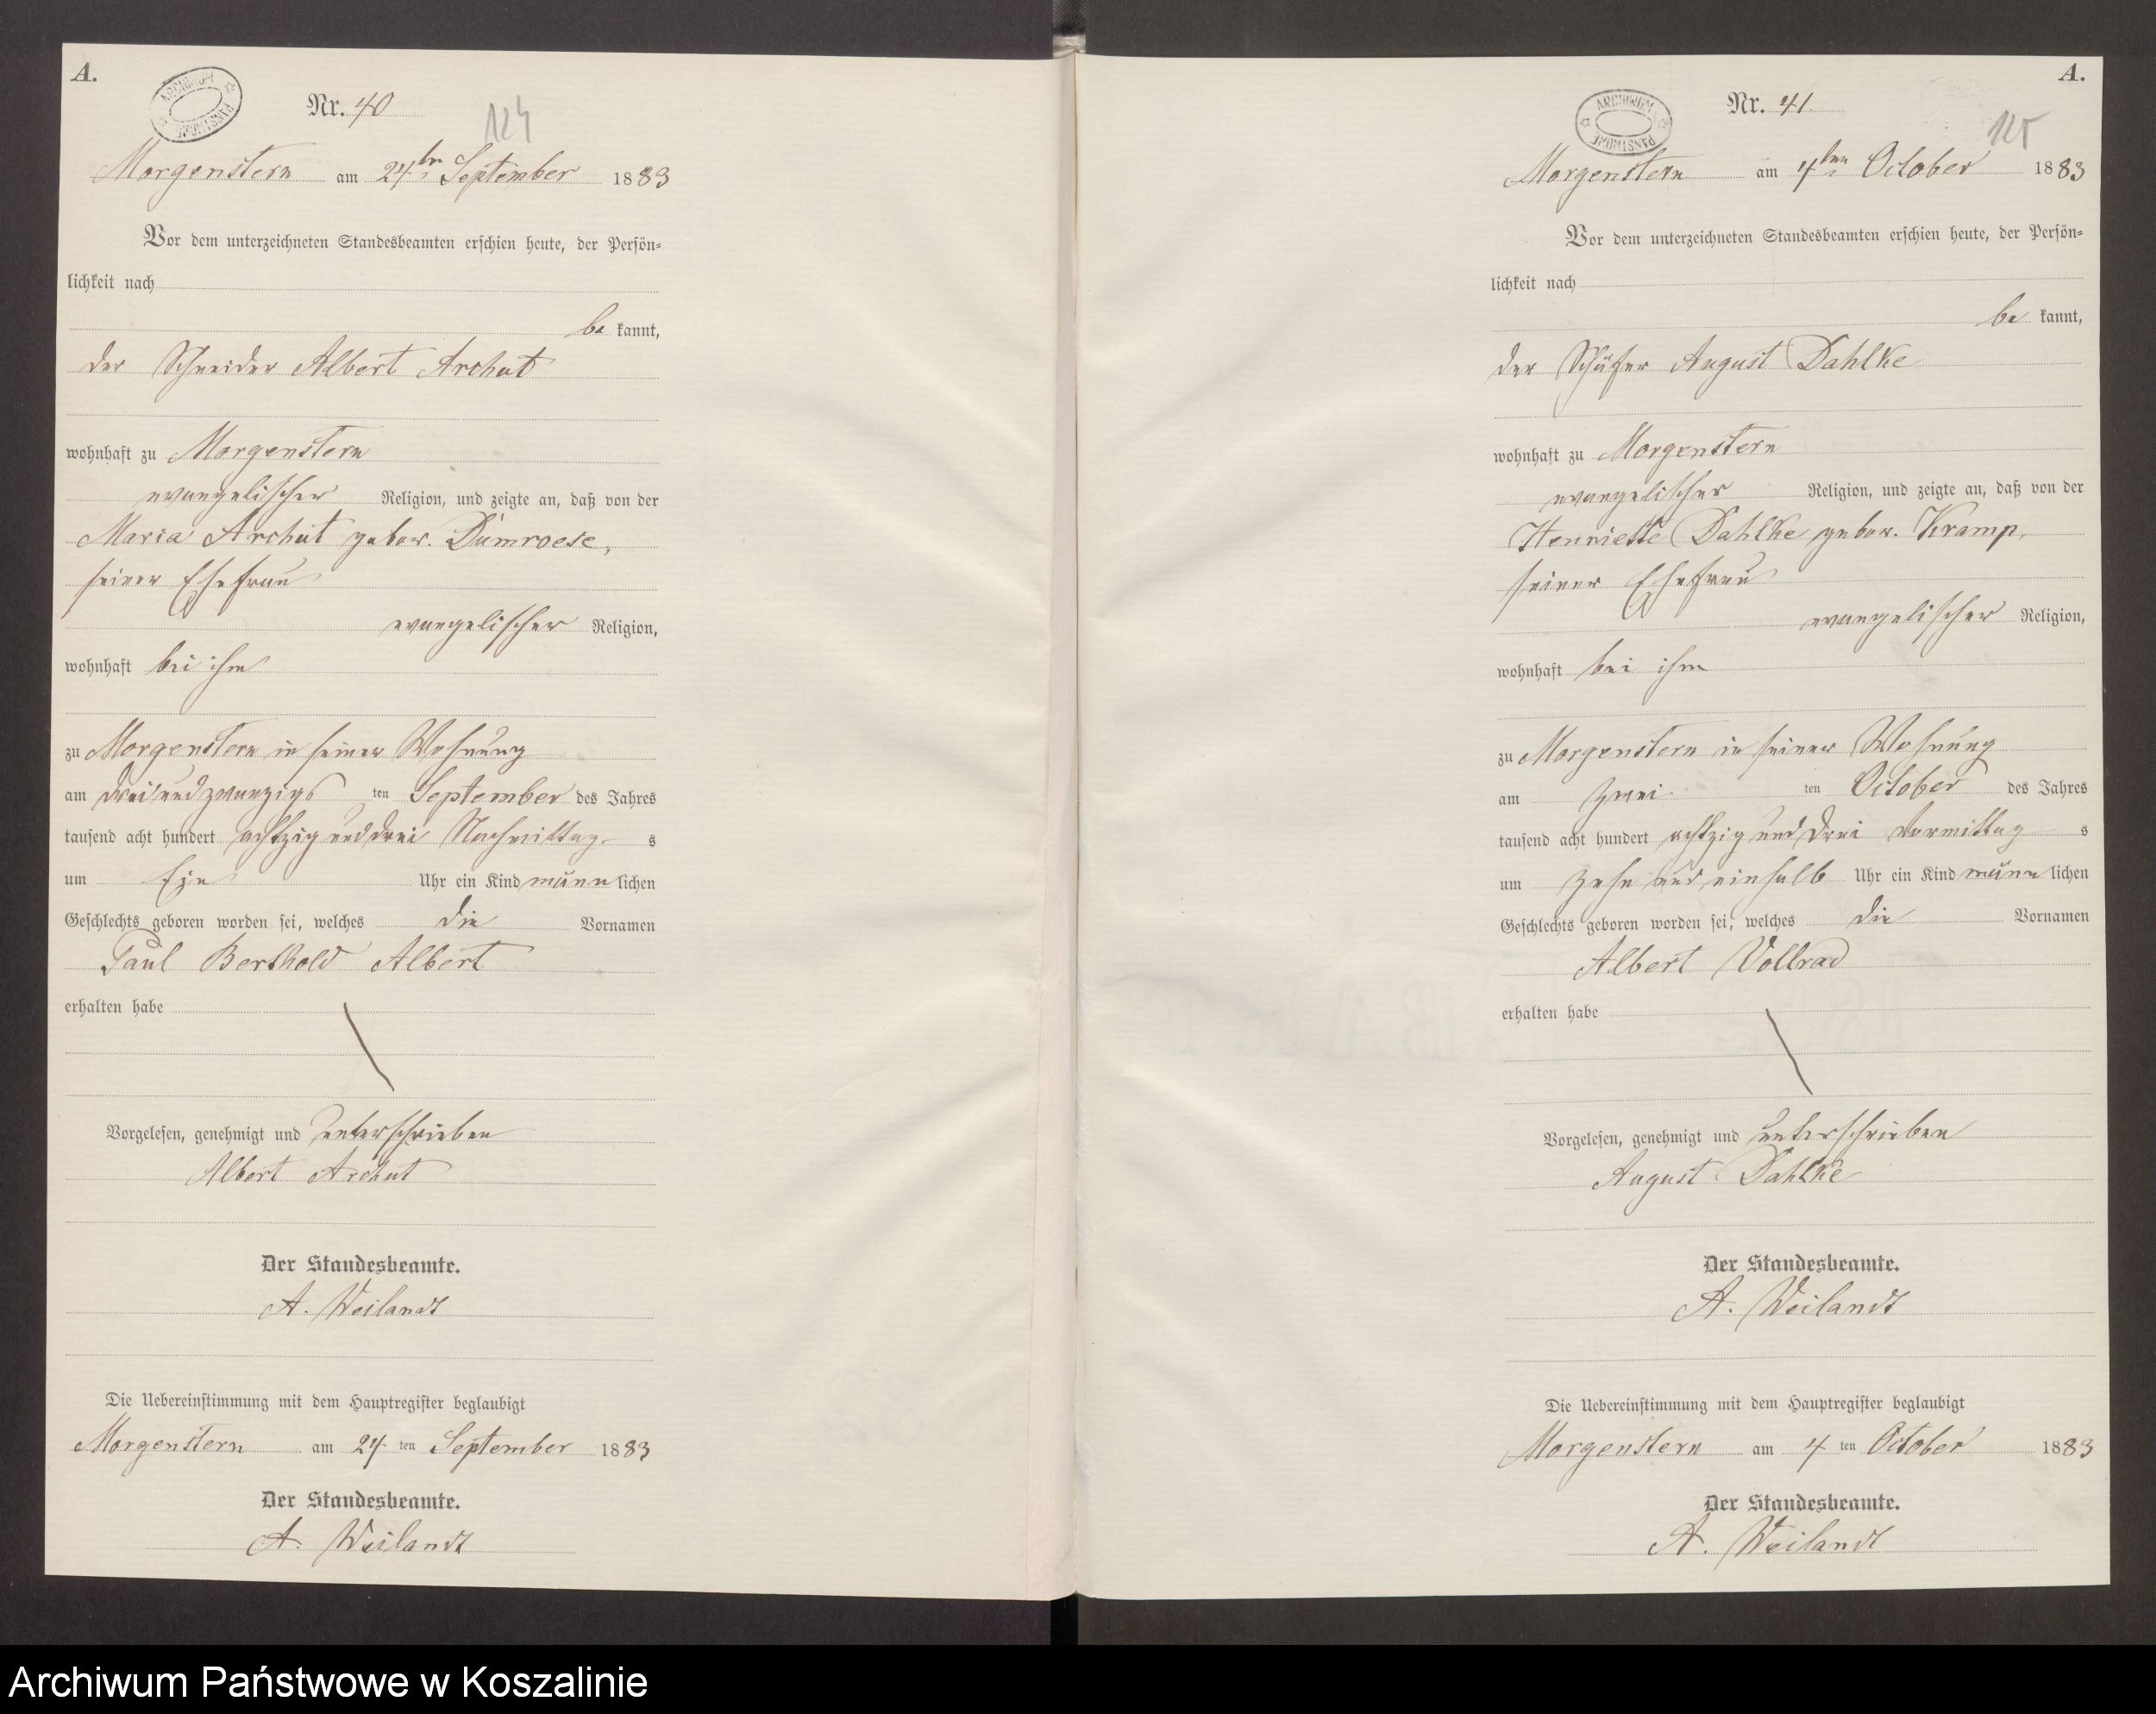 A.
ARCHIWUM PAŃSTWOWE
Nr. 40
124
Morgenstern am 24ten September 1883
Vor dem unterzeichneten Standesbeamten erschien heute, der Persön-
lichkeit nach
be kannt,
der Schneider Albert Archut
wohnhaft zu Morgenstern
evangelischer Religion, und zeigte an, daß von der
Maria Archut gebor. Dumroese,
seiner Ehefrau
evangelischer Religion,
wohnhaft bei ihm
zu Morgenstern in seiner Wohnung
am dreiundzwanzigs ten September des Jahres
tausend acht hundert achtzig und drei Nachmittag s
um Uhr ein Kind männ lichen
Geschlechts geboren worden sei, welches die Vornamen
Paul Berthold Albert
erhalten habe
Vorgelesen, genehmigt und unterschrieben
Albert Archut
Der Standesbeamte.
A. Weilandt
Die Uebereinstimmung mit dem Hauptregister beglaubigt
Morgenstern am 24 ten September 1883
Der Standesbeamte.
A. Weilandt
A.
ARCHIWUM PAŃSTWOWE
Nr. 41
125
Morgenstern am 4ten October 1883
Vor dem unterzeichneten Standesbeamten erschien heute, der Persön-
lichkeit nach
be kannt,
der Schäfer August Dahlke
wohnhaft zu Morgenstern
evangelischer Religion, und zeigte an, daß von der
Henriette Dahlke gebor. Kramp,
seiner Ehefrau
evangelischer Religion,
wohnhaft bei ihm
zu Morgenstern in seiner Wohnung
am zwei ten October des Jahres
tausend acht hundert achtzig und drei Vormittag s
um zehn und einhalb Uhr ein Kind männ lichen
Geschlechts geboren worden sei, welches die Vornamen
Albert Vollrad
erhalten habe
Vorgelesen, genehmigt und unterschrieben
August Dahlke
Der Standesbeamte.
A. Weilandt
Die Uebereinstimmung mit dem Hauptregister beglaubigt
Morgenstern am 4 ten October 1883
Der Standesbeamte.
A. Weilandt
Archiwum Państwowe w Koszalinie